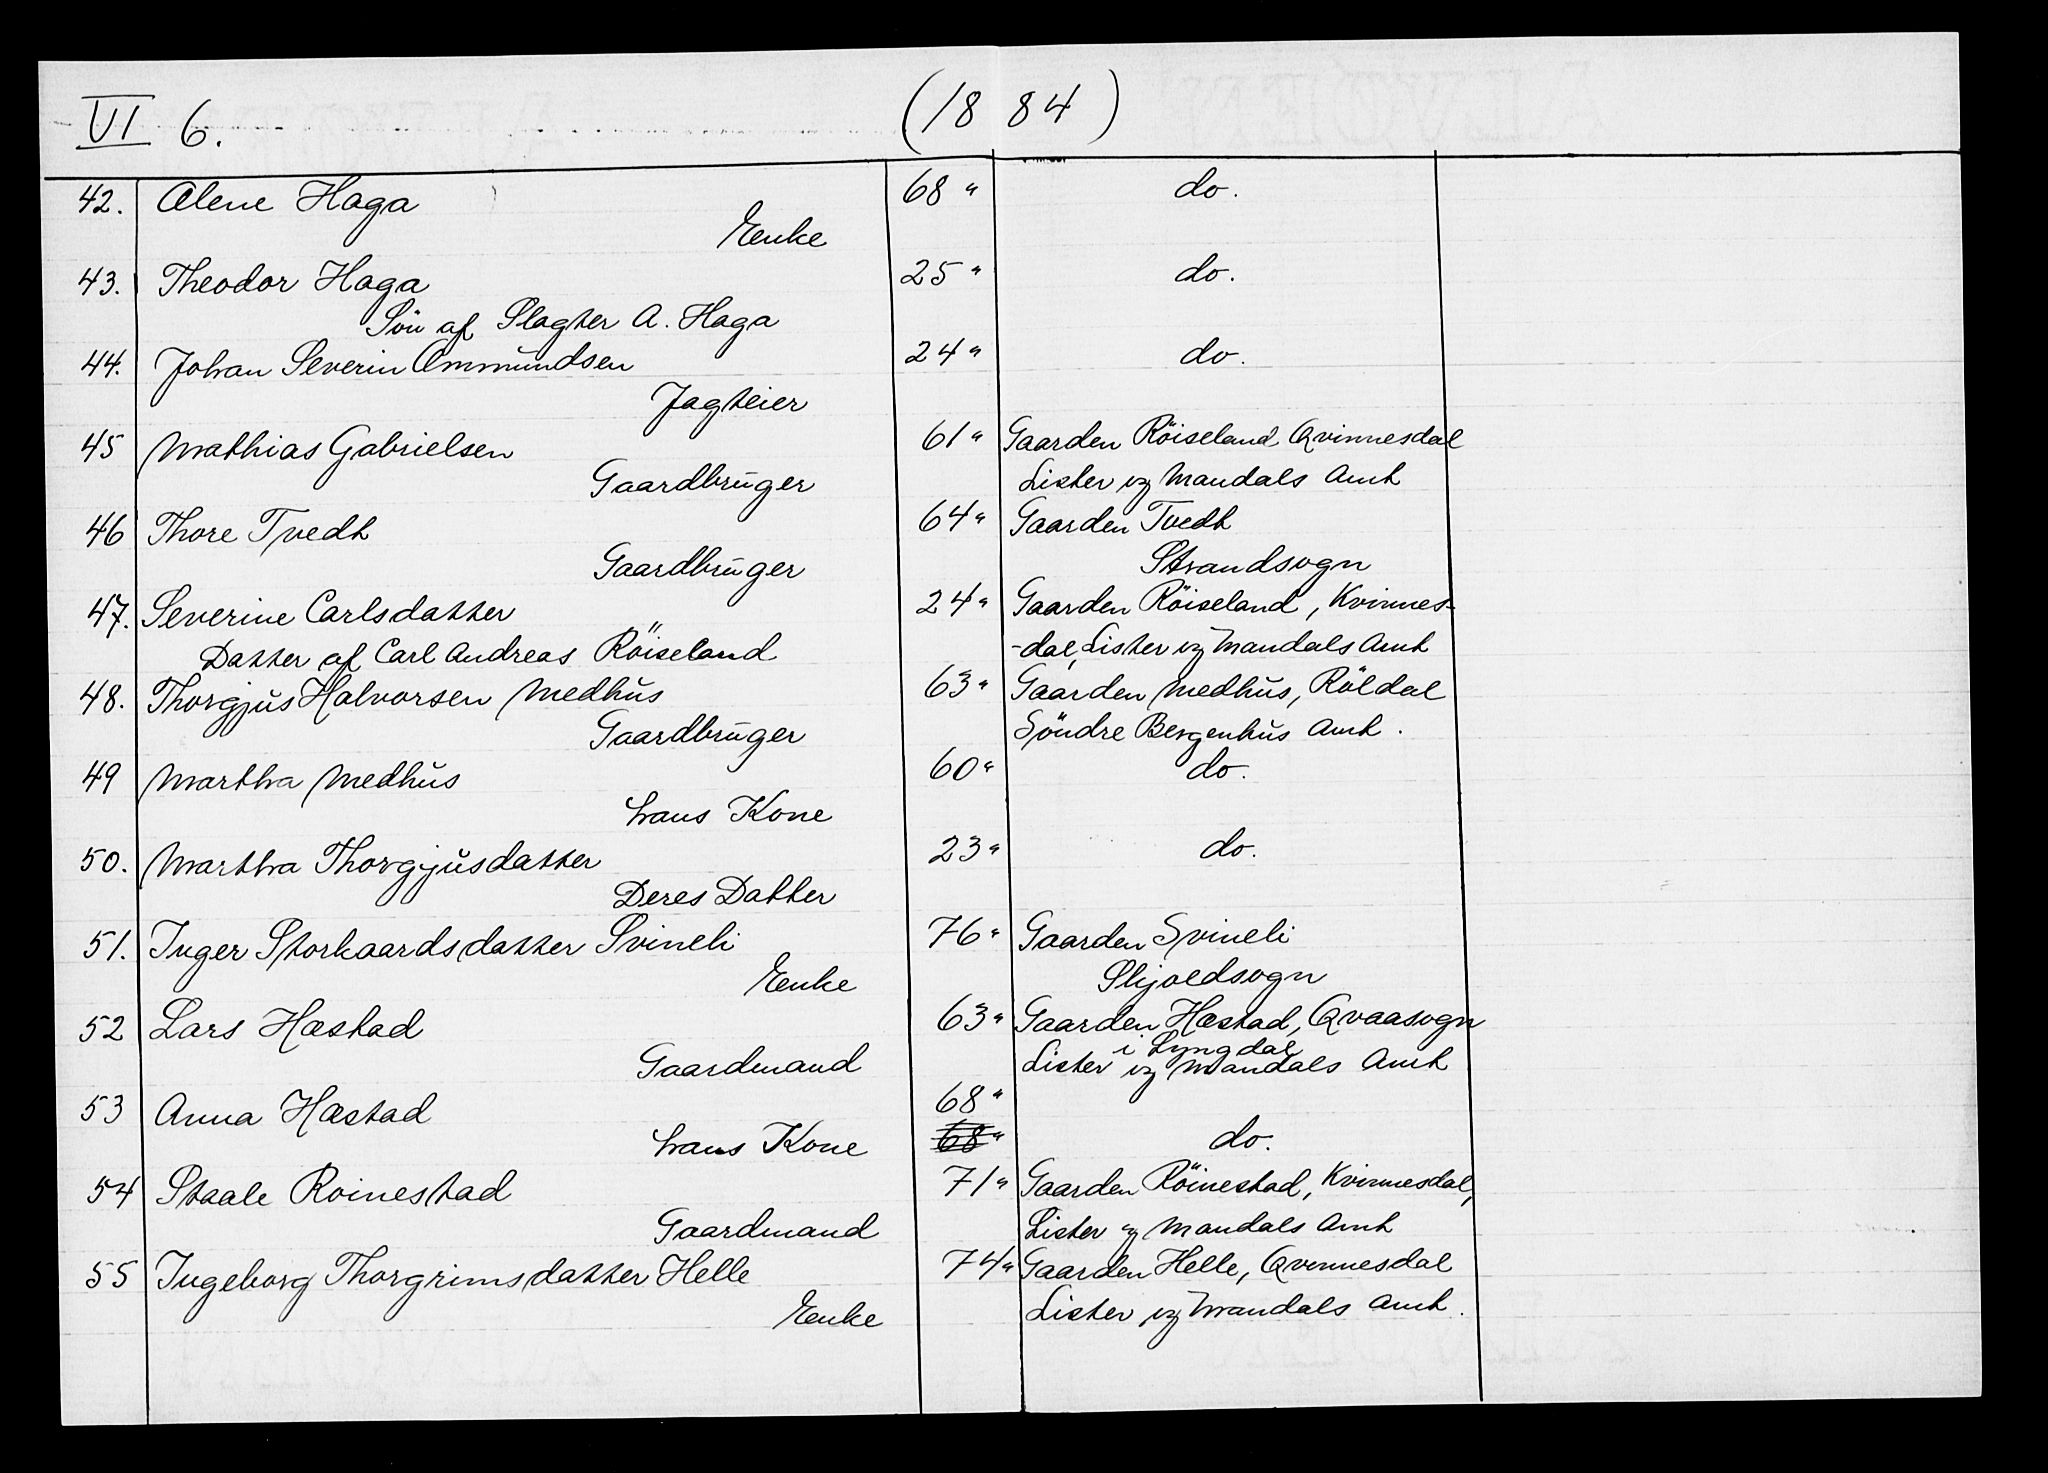 VI 6. (1884)
42. Alene Haga 68 " do.
Enke
43. Theodor Haga 25 " do.
Sön af Slagter A. Haga
44. Johan Severin Ommundsen 24 " do.
Jagteier
45 Mathias Gabrielsen 61 " Gaarden Röiseland Qvinnesdal
Gaardbruger Lister og Mandals Amt
46 Thore Tvedt 64 " Gaarden Tvedt
Gaardbruger Strandsogn
47. Severine Carlsdatter 24 " Gaarden Röiseland, Kvinnes-
Datter af Carl Andreas Röiseland -dal, Lister og Mandals Amt
48. Thorgjus Halvorsen Medhus 63 " Gaarden Medhus, Röldal
Gaardbruger Söndre Bergenhus Amt.
49 Martha Medhus 60 " do.
hans Kone
50. Martha Thorgjusdatter 23 " do.
Deres Datter
51. Inger Storkaardsdatter Svineli 76 " Gaarden Svineli
Enke Skjoldsogn
52 Lars Hæstad 63 " Gaarden Hæstad, Qvaasogn
i Lyngdal
Gaardmand Lister og Mandals Amt
53 Anna Hæstad 68 "
hans Kone 68 " do.
54 Staale Roinestad 71 " Gaarden Röinestad, Kvinnesdal,
Gaardmand Lister og Mandals Amt
55 Ingeborg Thorgrimsdatter Helle 74 " Gaarden Helle, Qvinnesdal
Enke Lister og Mandals Amt.